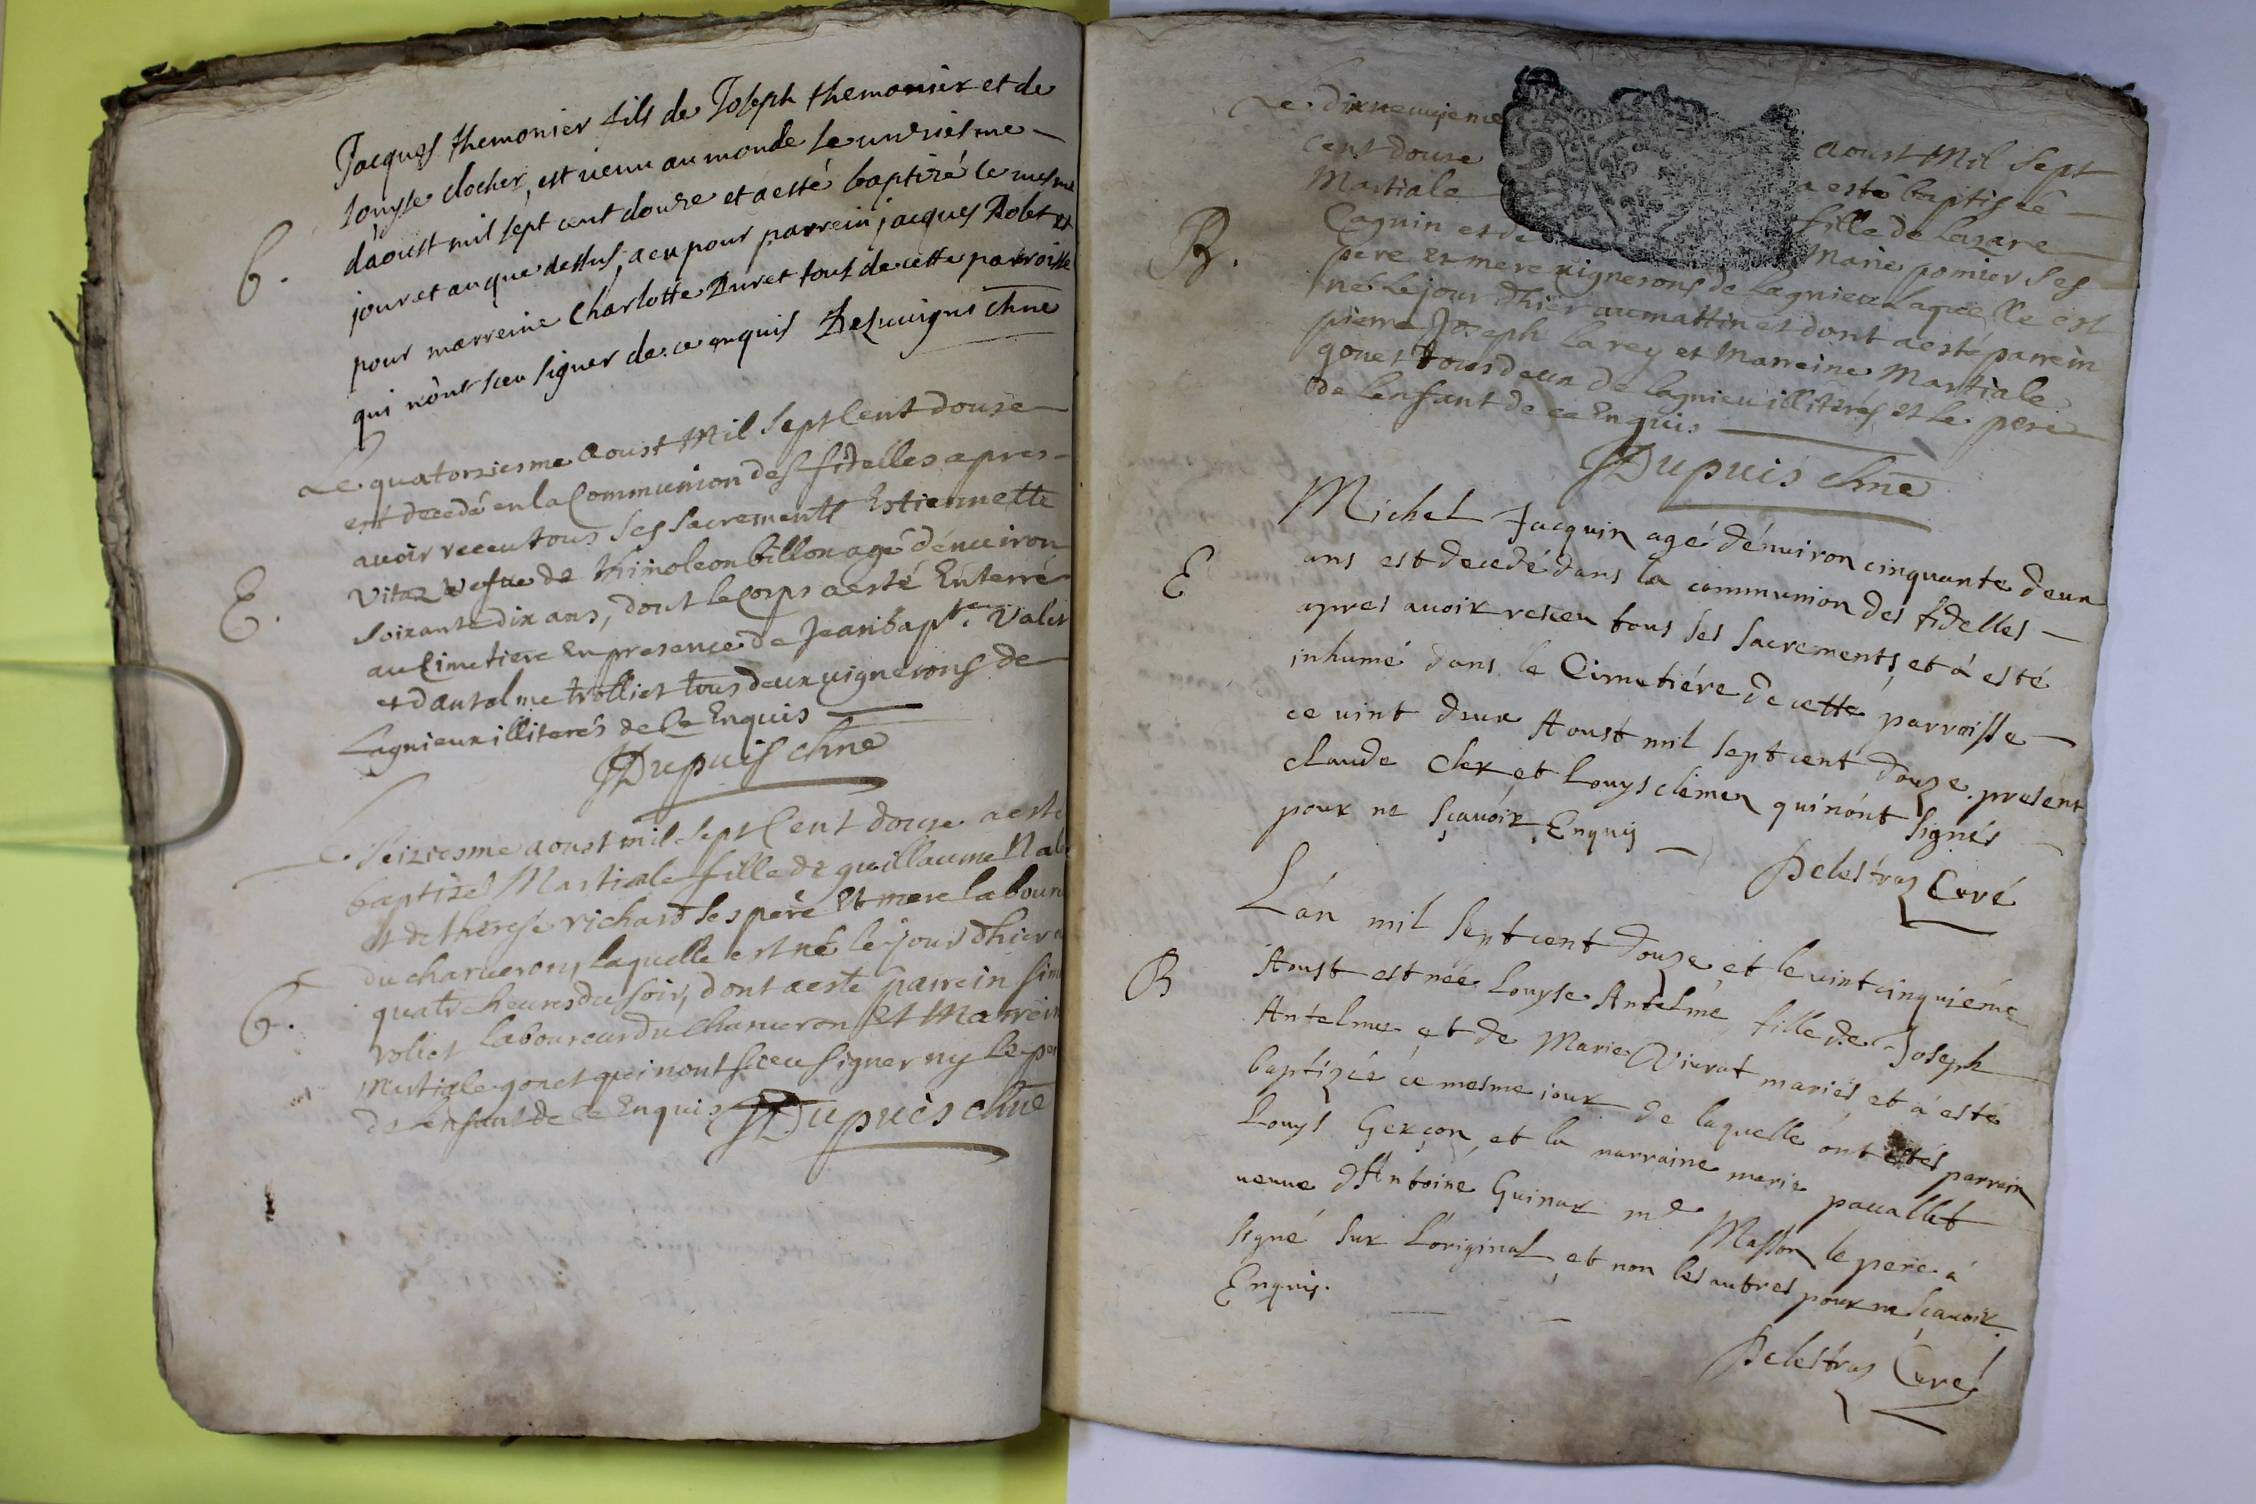 Jacques themonier fils de Joseph themonier et de
Louyse clocher, est venu au monde le unziesme
b.
daoust mil sept cent douze et a esté baptizé le mesme
jour et an que dessus, a eu pour parrein jacques Robet et
pour marreine Charlotte Duret tous de cette parroisse
qui nont sceu signer de ce enquis Desuuignes chne
Le quatorziesme aoust Mil sept Cent douze
est decedé en la Communion des fidelles apres
avoir receu tous ses sacrements Estiennette
E.
Vitaz vefue de thimoleon billon agé dénuiron
soixante dix ans, dont le Corps a esté Enterré
au Cimetiere En presence de Jean bapte. Valet
et dantelme trolliet tous deux vignerons de
Lagnieu illiterés de Ce Enquis
JDupuis chne
Le seiziesme aoust mil sept Cent douze a esté
baptizeé Martiale fille de guillaume
et de therese richard ses pere Et mere
du charveron, laquelle est né le jour dhier
b.
quatre heures du soir, dont a esté parrein
voliet laboureur du charveron Et Marrein
Martiale gonet qui nont sceu signer ny le
de lenfant de Ce Enquis JDupuis chne
Le dixneuvieme aoust Mil sept
cent douze a esté baptiseé
Martiale fille de Lazare
B.
Caguin et de Marie pomier ses
pere et mere vignerons de Lagnieu laquelle est
neé le jour dhier au mattin et dont a esté parrein
pierre Joseph Larey et Marreine Martiale
gonet tous deux de lagnieu illiterés, et le pere
de Lenfant de ce Enquis
JDupuis chne
Michel Jacquin agé dénuiron cinquante deux
E
ans est decedé dans la communion des fidelles
apres auoir receu tous ses sacrements et à esté
inhumé dans le Cimetiére de cette parroisse
ce uint deux Aoust mil sept cent douze. present
claude cler et Louys clémen qui nónt signés
pour ne sçauoir Enquis Delestraz Curé
Lán mil sept cent douze et le uint cinquiéme
B
Aoust est née Louyse Antelme fille de Joseph
Antelme et de Marie Viurat mariés et à esté
baptizée cé mesme iour de laquelle ónt estés parrain
Louys Gerçon et la marraine marie pauallet
ueuue d'Antoine Guinar me Masson le pere à
signé sur L'original et non les autres pour ne sçauoir.
Enquis.
Delestraz Curé